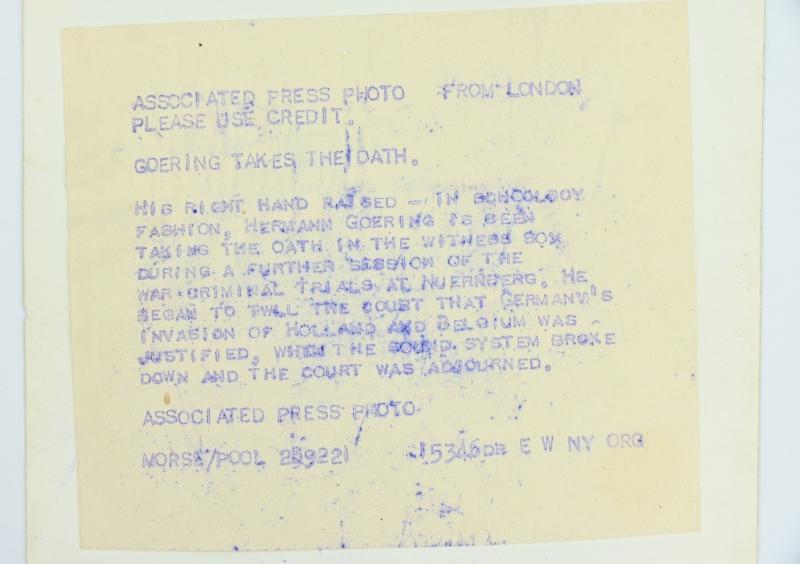 ASSOCIATED PRESS PHOTO FROM LONDON
PLEASE USE CREDIT.
GOERING TAKES THE OATH.
HIS RIGHT HAND RAISED — IN SCHOOLBOY
FASHION, HERMANN GOERING IS SEEN
TAKING THE OATH IN THE WITNESS BOX
DURING A FURTHER SESSION OF THE
WAR CRIMINAL TRIALS AT NUERNBERG. HE
BEGAN TO TELL THE COURT THAT GERMANY'S
INVASION OF HOLLAND AND BELGIUM WAS
JUSTIFIED, WHEN THE SOUND SYSTEM BROKE
DOWN AND THE COURT WAS ADJOURNED.
ASSOCIATED PRESS PHOTO
MORSE/POOL 15346DR E W NY ORG